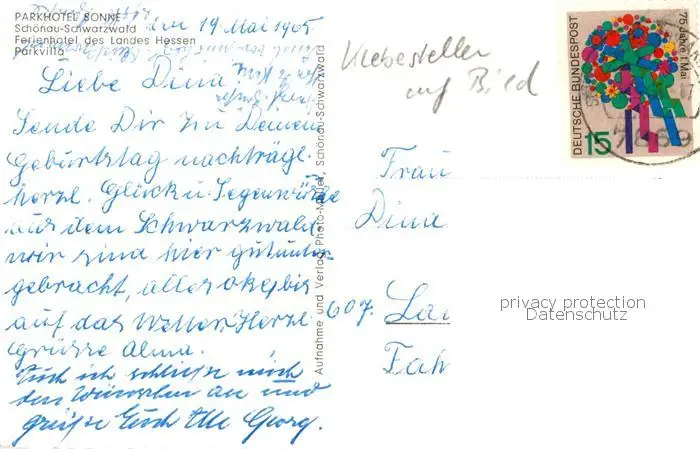 PARKHOTEL SONNE
Schönau-Schwarzwald
Ferienhotel des Landes Hessen
Parkvilla
den 19 Mai 1965
Liebe Dina
Sende Dir zu Deinem
Geburtstag nachträgl.
herzl. Glück u. Segenwünsche
aus dem Schwarzwald
wir sind hier gut unter-
gebracht, alles okey bis
auf das Wetter. Herzl.
Grüsse Alma.
Auch ich schließe mich
den Wünschen an und
grüße Euch Alle Georg.
Aufnahme und Verlag Photo-Müller, Schönau-Schwarzwald
Klebestellen
auf Bild
DEUTSCHE BUNDESPOST
75 Jahre 1. Mai
15
7869
Frau
Dina
607.
privacy protection
Datenschutz